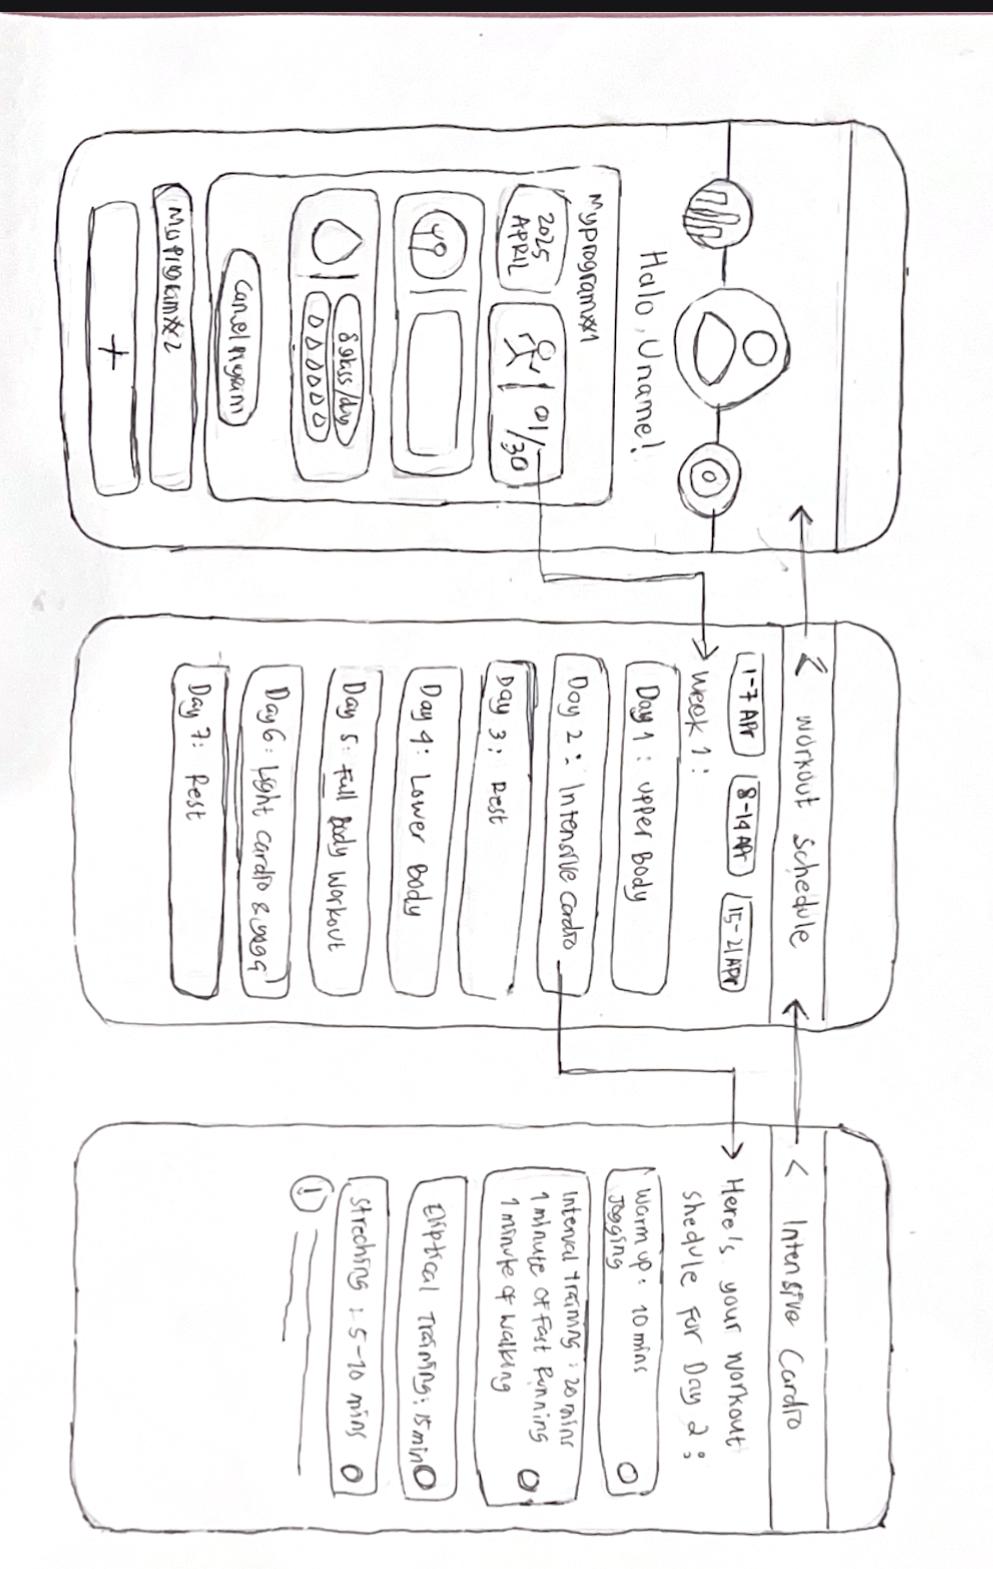 Halo, Uname!
Myprogram#1
2025
APRIL
01/30
8 glass/day
Cancel program
Myprogram#2
+
< Workout Schedule
1-7 Apr
8-14 Apr
15-21 Apr
Week 1:
Day 1: Upper Body
Day 2: Intensive Cardio
Day 3: Rest
Day 4: Lower Body
Day 5: Full Body Workout
Day 6: Light Cardio & yoga
Day 7: Rest
< Intensive Cardio
Here's your workout
shedule for Day 2:
Warm up: 10 mins
Jogging
Interval training: 20 mins
1 minute of fast Running
1 minute of walking
Eliptical Training: 15min
Streching: 5-10 mins
!